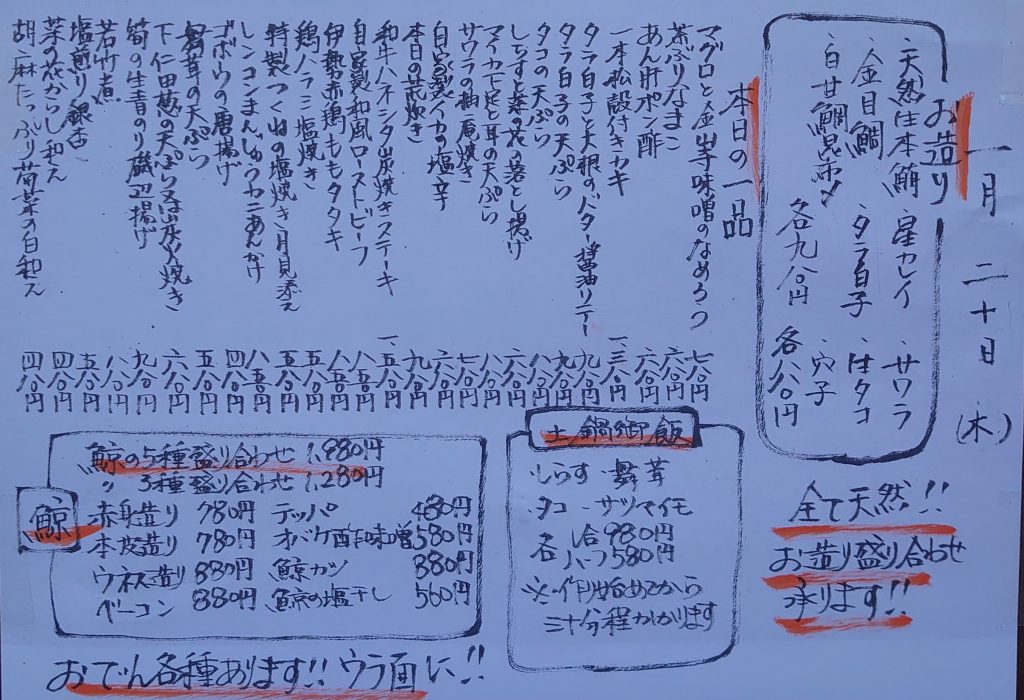 一月二十日(木)
お造り
・天然生本鮪 ・星カレイ ・サワラ
・金目鯛 ・タラ白子 ・生タコ
・白甘鯛昆布〆 ・穴子
各九八〇円 各八八〇円
本日の一品
マグロと金山寺味噌のなめろう 七八〇円
茶ぶりなまこ 六八〇円
あん肝ポン酢 六八〇円
一本松殻付きカキ 一、三八〇円
タラ白子と大根のバター醤油ソテー 九八〇円
タラ白子の天ぷら 九八〇円
タコの天ぷら 八八〇円
しらすと菜の花の落とし揚げ 六八〇円
マイカ下足と耳の天ぷら 八八〇円
サワラの柚庵焼き 七八〇円
自家製イカの塩辛 六八〇円
本日の兜炊き 九八〇円
和牛ハネシタ炭焼きステーキ 一、五八〇円
自家製和風ローストビーフ 八八〇円
伊勢赤鶏ももタタキ 八八〇円
鶏ハラミ塩焼き 五八〇円
特製つくねの塩焼き月見添え 五五〇円
レンコンまんじゅうカニあんかけ 八五〇円
ゴボウの唐揚げ 四八〇円
舞茸の天ぷら 五八〇円
下仁田葱の天ぷら又は炭火焼き 六八〇円
筍の生青のり磯辺揚げ 九八〇円
若竹煮 八八〇円
塩煎り銀杏 五八〇円
菜の花からし和え 四八〇円
胡麻たっぷり春菊の白和え 四八〇円
全て天然!!
お造り盛り合わせ
承ります!!
土鍋御飯
・しらす ・舞茸
・タコ ・サツマイモ
各 一合 980円
ハーフ 580円
※作り始めてから
三十分程かかります
鯨
鯨の5種盛り合わせ 1,980円
〃 3種盛り合わせ 1,280円
赤身造り 780円 テッパ 480円
本皮造り 780円 オバケ酢味噌 580円
ウネス造り 880円 鯨カツ 880円
ベーコン 880円 鯨の塩干し 560円
おでん各種あります!! ウラ面に!!